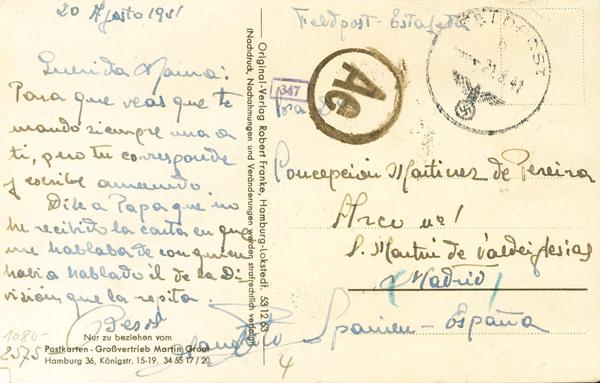 20 Agosto 1941
Querida Mama:
Para que veas que te
mando siempre una a
ti, pero tu corresponde
y escribe a menudo.
Dile a Papa que no
he recibido la carta en que
me hablaba de con quien
habia hablado il de la Di-
visión que la repita.
Besos
1080-
2575
Nur zu beziehen vom
Postkarten-Großvertrieb Martin Groot
Hamburg 36, Königstr. 15-19. 34 55 17 / 20
Original-Verlag Robert Franke, Hamburg-Lokstedt. 53 12 63
(Nachdruck, Nachahmungen und Veränderungen werden strafrechtlich verfolgt)
Feldpost - Estafeta
347
Ae
FELDPOST
b
21.8.41
Concepción Martinez de Pereira
Arco nº 1
S. Martin de Valdeiglesias
(Madrid)
Spanien - España
4